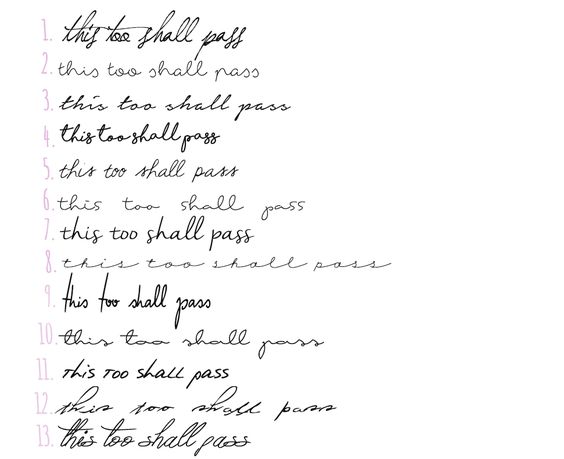 1. this too shall pass
2. this too shall pass
3. this too shall pass
4. this too shall pass
5. this too shall pass
6. this too shall pass
7. this too shall pass
8. this too shall pass
9. this too shall pass
10. this too shall pass
11. THis TOO SHALL PASS
12. this too shall pass
13. this too shall pass